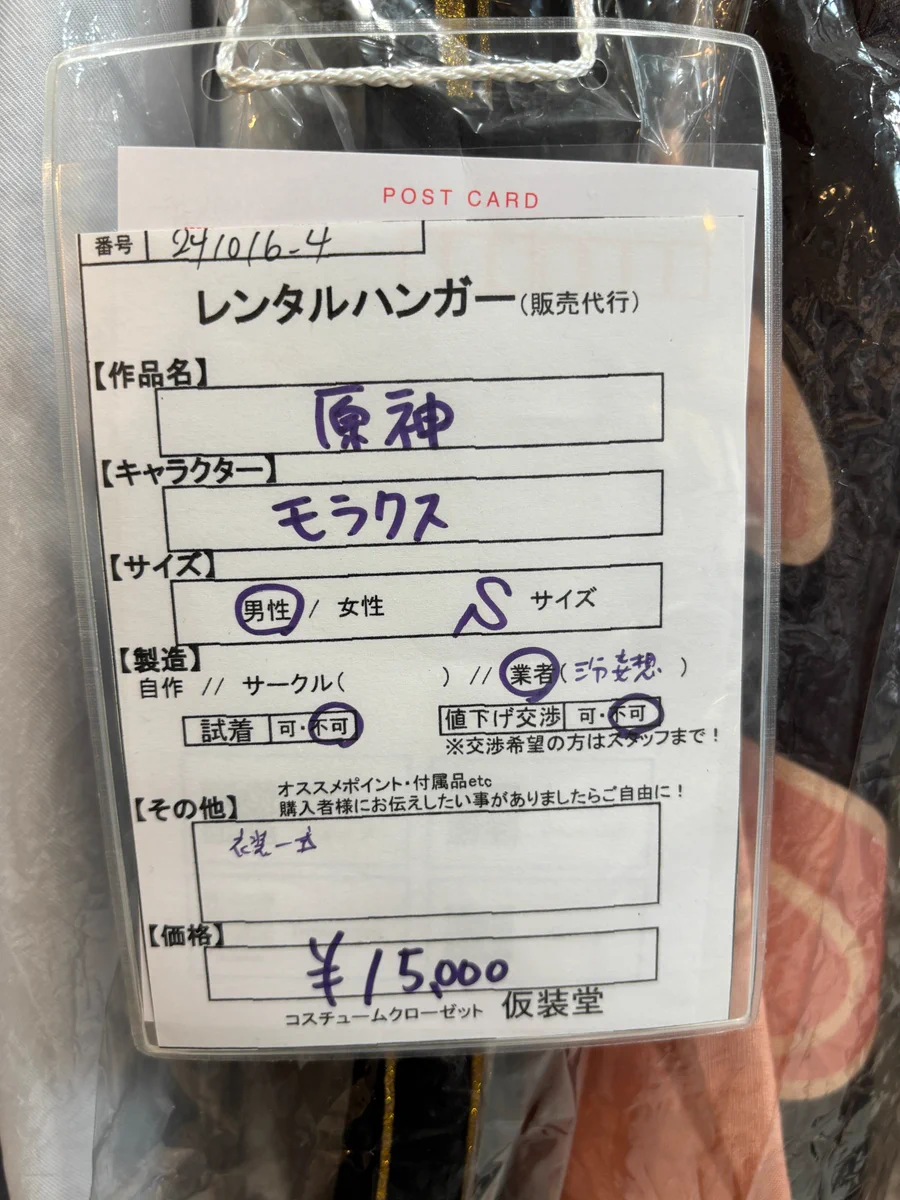 POST CARD
番号 241016-4
レンタルハンガー(販売代行)
【作品名】
原神
【キャラクター】
モラクス
【サイズ】
男性 / 女性 S サイズ
【製造】
自作 // サークル( ) // 業者( 妄想 )
試着 可・不可 値下げ交渉 可・不可
※交渉希望の方はスタッフまで!
オススメポイント・付属品etc
【その他】 購入者様にお伝えしたい事がありましたらご自由に!
衣装一式
【価格】
¥15,000
コスチュームクローゼット 仮装堂